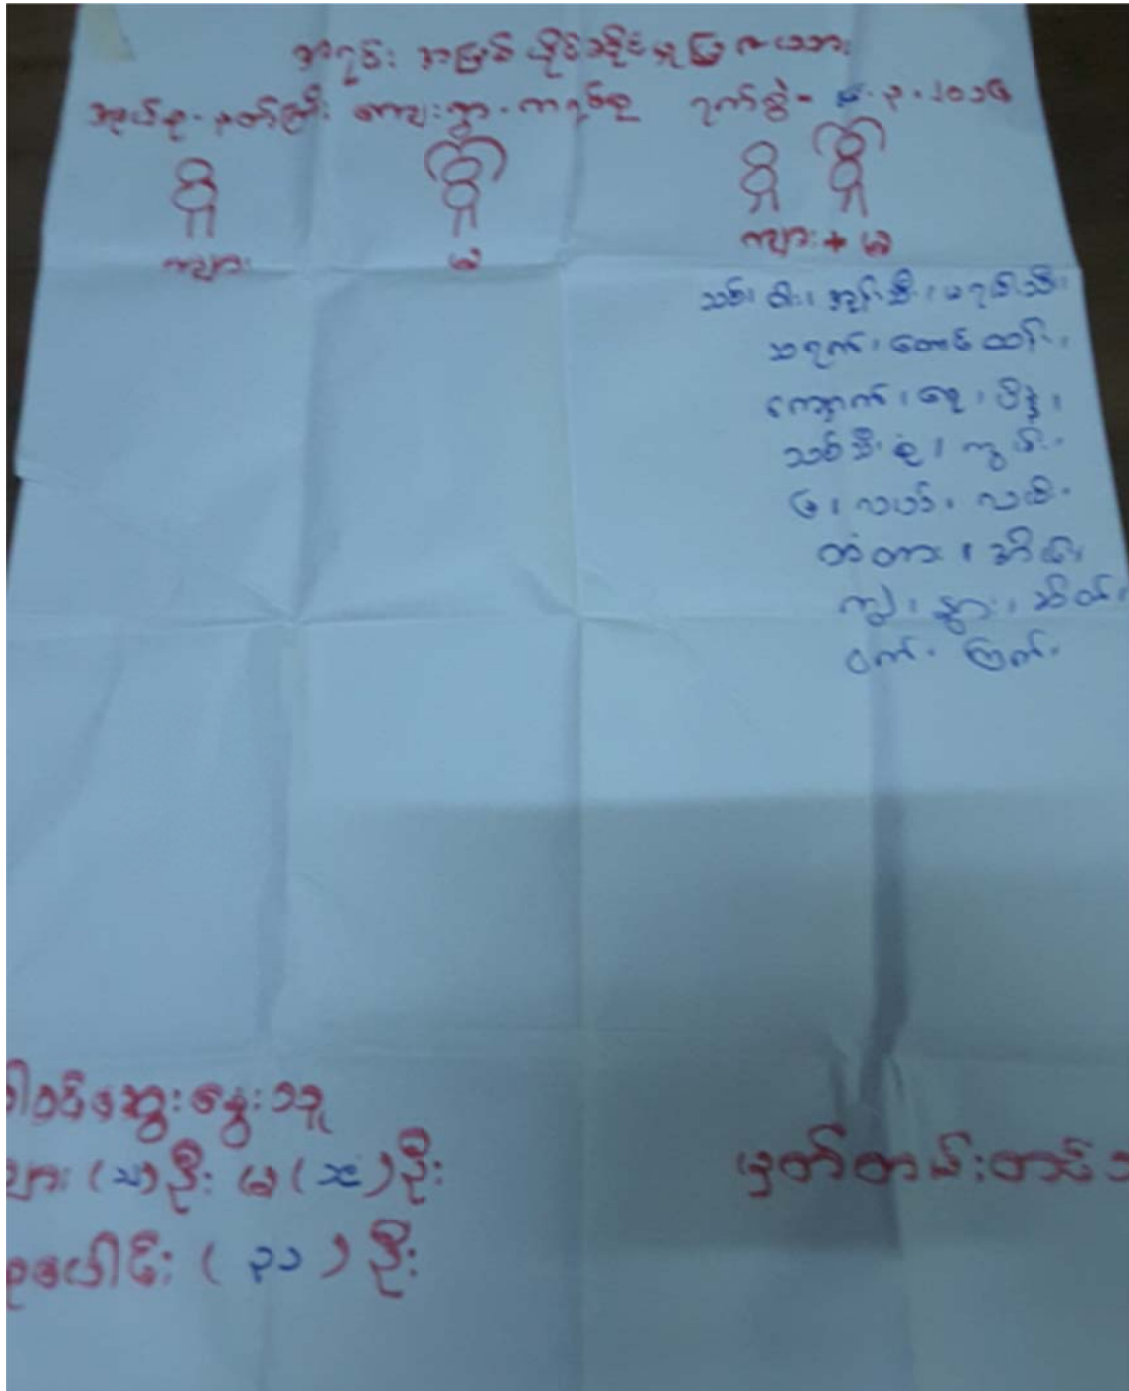 အရင်းအမြစ် ပိုင်ဆိုင်မှုပြ ဇယား
အုပ်စု - မုတ်ကြီး ကျေးရွာ - ကရစ်စု ရက်စွဲ - ၃-၂၀၁၆
ကျား မ ကျား + မ
သစ်၊ ဝါး၊ အုန်းသီး၊ မရမ်းသီး၊
သရက်၊ တောင်ထန်း၊
ကျောက်၊ မြေ၊ ပိန္နဲ၊
သစ်သီးစုံ၊ ကွမ်း၊
မြေ၊ လယ်၊ လမ်း၊
တံတား၊ အိမ်၊
ကျွဲ၊ နွား၊ ဆိတ်၊
ဝက်၊ ကြက်၊
ပါဝင်ဆွေးနွေးသူ
ကျား ( ) ဦး မ ( ) ဦး
စုပေါင်း ( ၃၁ ) ဦး
မှတ်တမ်းတင်